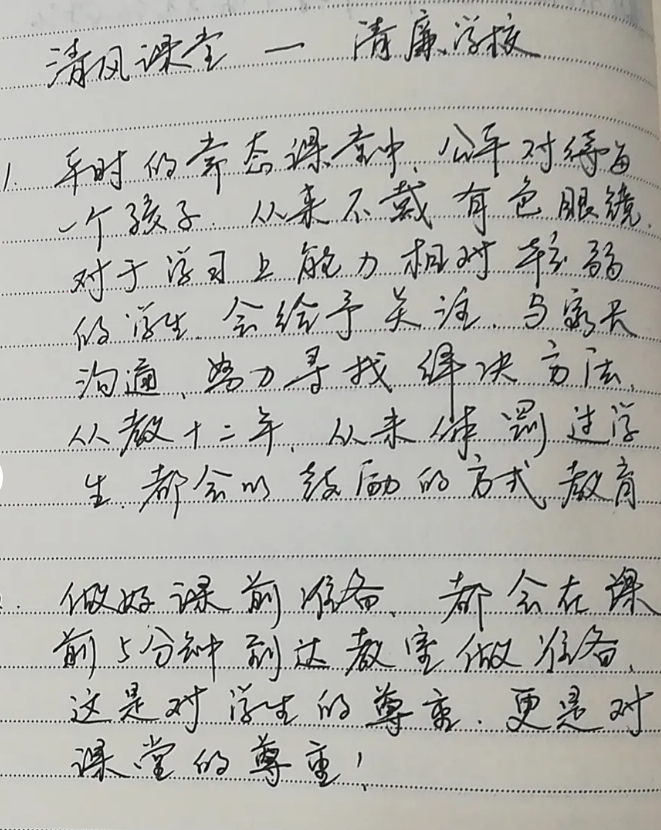 清风课堂 — 清廉学校
1. 平时的常态课堂中，公平对待每
一个孩子，从来不戴有色眼镜，
对于学习上能力相对较弱
的学生，会给予关注，与家长
沟通，努力寻找解决方法，
从教十二年，从来体罚过学
生，都会以鼓励的方式教育
做好课前准备，都会在课
前5分钟到达教室做准备，
这是对学生的尊重，更是对
课堂的尊重！